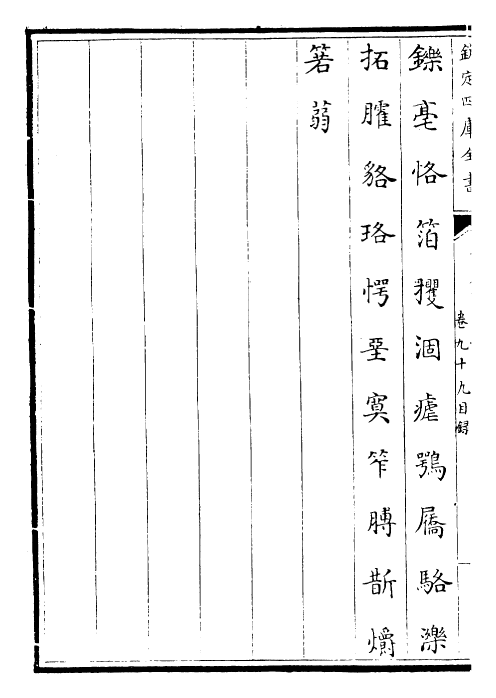 欽定四庫全書
卷九十九目録
鑠亳恪箔玃涸瘧鶚屩駱濼
拓臛貉珞愕堊寞笮膊斮爝
箬蒻